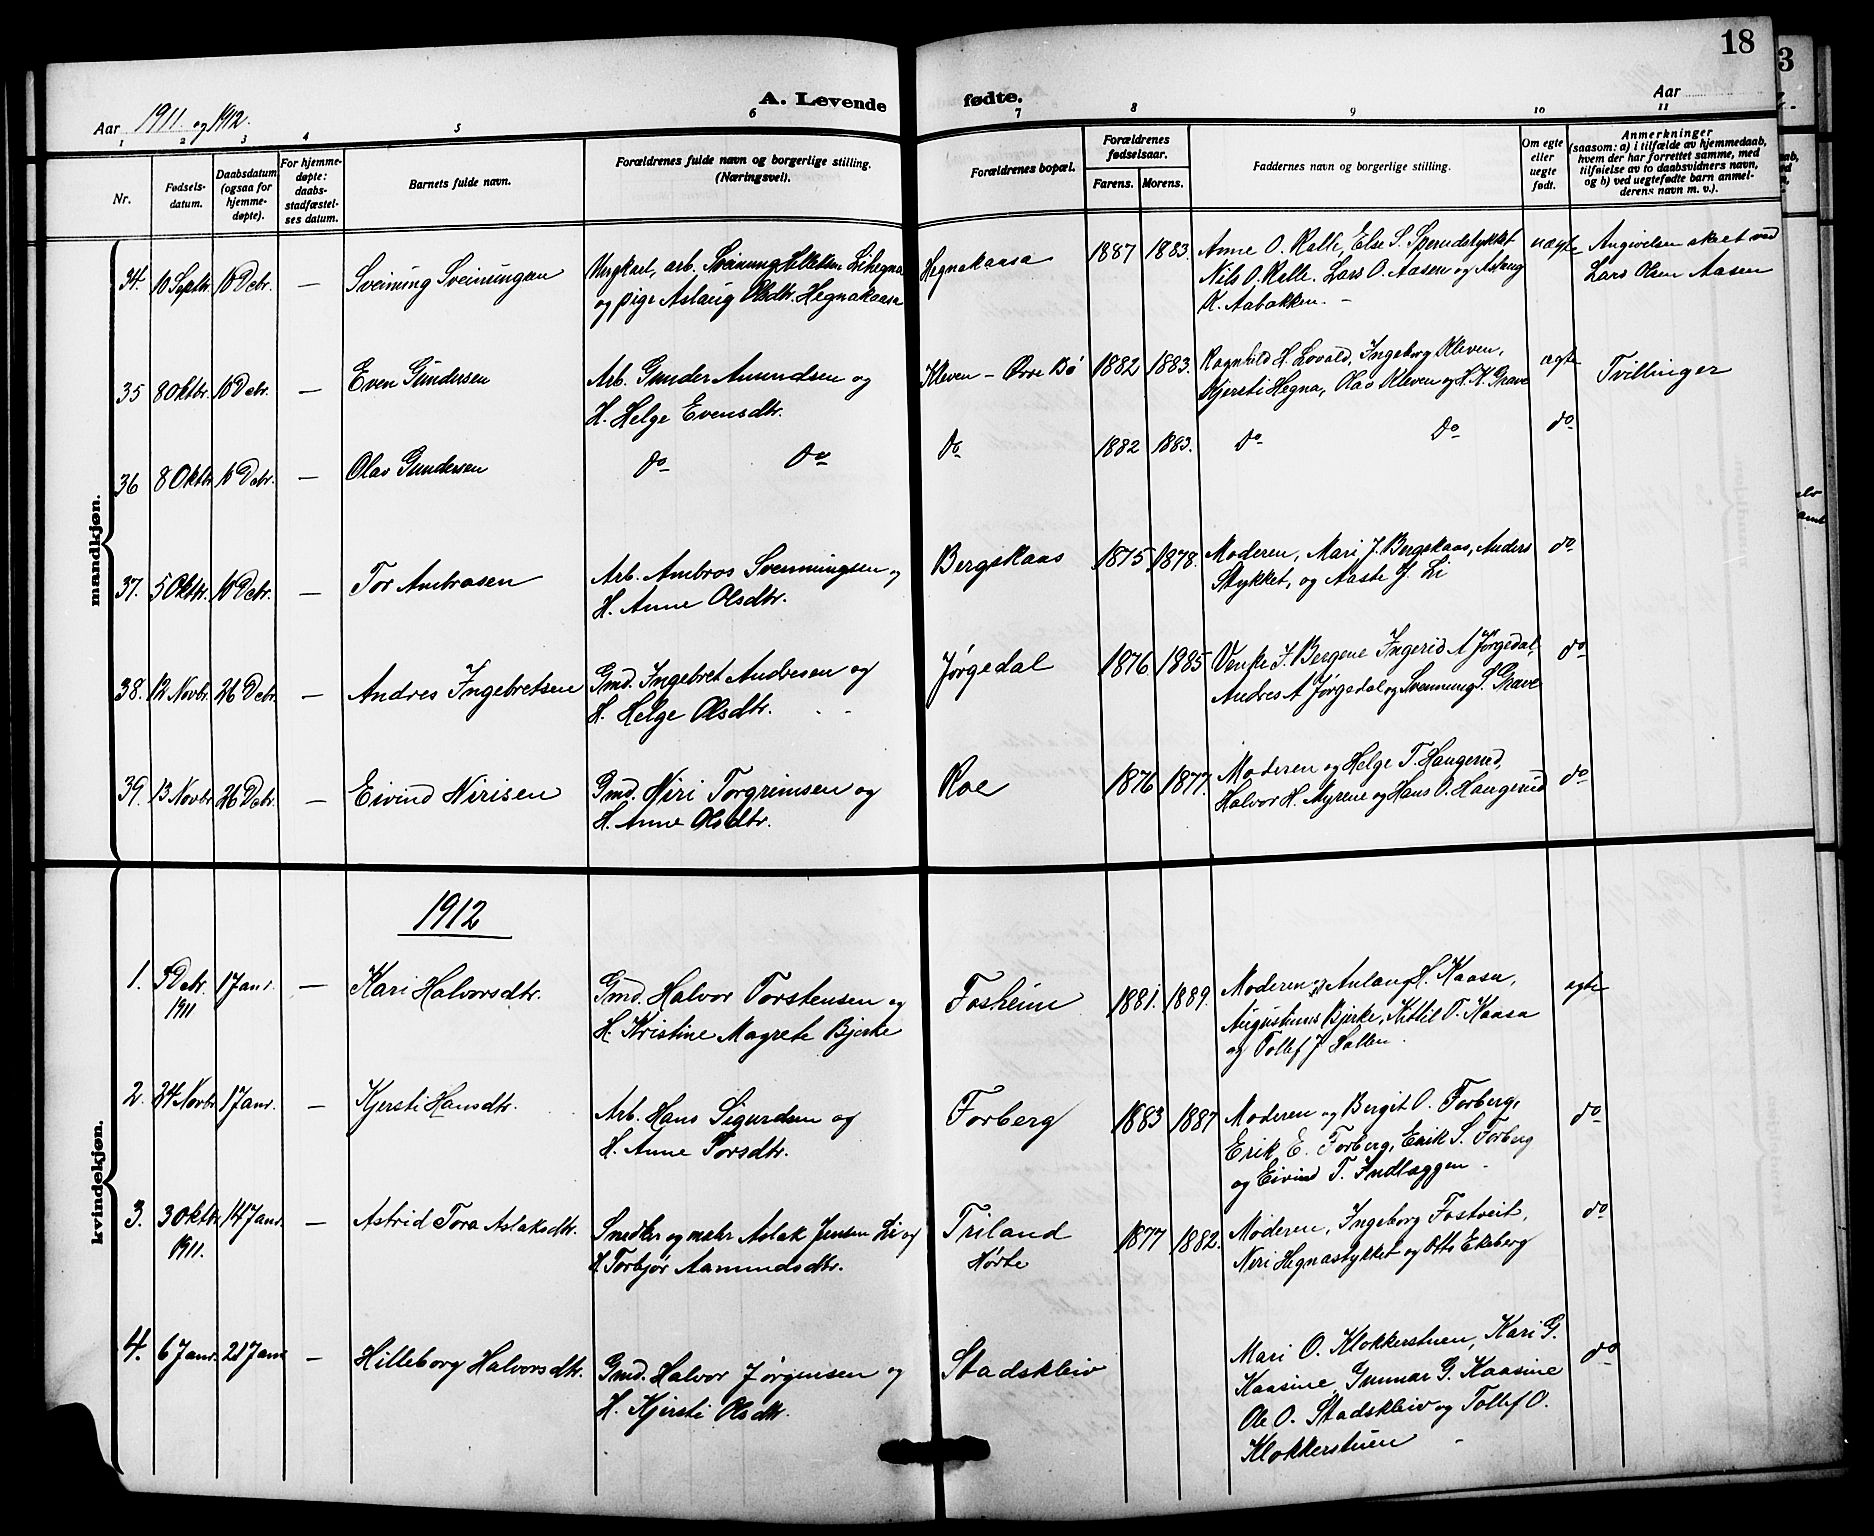 18
3
A. Levende fødte.
Aar 1911 og 1912.
Aar
1 2 3 4 5 6 7 8 9 10 11
Nr.
Fødsels-
datum.
Daabsdatum
(ogsaa for
hjemme-
døpte).
For hjemme-
døpte:
daabs-
stadfæstel-
ses datum.
Barnets fulde navn.
Forældrenes fulde navn og borgerlige stilling.
(Næringsvei).
Forældrenes bopæl.
Forældrenes
fødselsaar.
Farens. Morens.
Faddernes navn og borgerlige stilling.
Om egte
eller
uegte
født.
Anmerkninger
(saasom: a) i tilfælde av hjemmedaab,
hvem der har forrettet samme, med
tilføielse av to daabsvidners navn,
og b) ved uegtefødte barn anmel-
derens navn m. v.).
mandkjøn.
34. 10 Septbr. 10 Debr. — Sveinung Sveinungsen
Ungkarl, arb. Sveinung Lihegna
og pige Aslaug Olsdtr. Hegnakaasa
Hegnakaasa 1887 1883.
Anne O. Kalle, Else S. Sperudstykket
Nils O. Kalle, Lars O. Aasen og Aslaug
K. Aabakken. —
uægte
Angivelsen skeet ved
Lars Olsen Aasen
35 8 Oktbr. 10 Debr. — Even Gundersen
Arb. Gunder Amundsen og
H. Helge Evensdtr.
Kleven – Øvre Bø 1882 1883.
Ragnhild H. Lovald, Ingeborg Kleven,
Kjersti Hegna, Olav Kleven og H. K. Grave
ægte
Tvillinger
36 8 Oktbr 10 Debr. — Olav Gundersen
do do
do 1882 1883. do do do
37. 5 Oktbr. 10 Debr. — Tor Ambrosen
Arb. Ambros Svenningsen og
H. Anne Olsdtr.
Bergskaas 1875 1878.
Moderen, Mari J. Bergskaas, Anders
Stykket, og Aaste J. Li
do
38. 12 Novbr. 26 Debr. — Andres Ingebretsen
Gmd. Ingebret Andresen og
H. Helge Olsdtr.
Jørgedal 1876 1885
Venke J. Bergene Ingerid A Jørgedal,
Andres A Jørgedal og Svennung S. Grave
do
39. 13 Novbr. 26 Debr. — Eivind Nirisen
Gmd. Niri Torgrimsen og
H. Anne Olsdtr.
Roe 1876 1877.
Moderen og Helge T. Haugerud,
Halvor H. Myrene og Hans O. Haugerud
do
kvindekjøn.
1912
1. 5 Debr. 1 Janr. — Kari Halvorsdtr.
1911
Gmd. Halvor Torstensen og
H. Kristine Magrete Bjerke
Fosheim 1881. 1889.
Moderen og H. Kaasa,
Augustinus Bjerke, Kittil T. Kaasa
og Tollef J Hallen.
egte
2. 24 Novbr 1 Janr. — Kjersti Hansdtr.
Arb. Hans Sigurdsen og
H. Anne Torsdtr.
Forberg 1883 1887
Moderen og Bergit O. Forberg,
Erik E. Forberg, Erik S. Forberg
og Eivind T. Indlæggen
do
3. 30 ktbr 14 Janr. — Astrid Tora Aslaksdtr.
1911.
Snedker og maler Aslak Jensen Li og
H. Torbjør Aamundsdtr.
Triland
Hørte
1877 1882.
Moderen, Ingeborg Fostveit,
Neri Hegnastykket og Otto Ekeberg
do
4. 6 Janr. 21 Janr — Hilleborg Halvorsdtr.
Gmd. Halvor Jørgensen og
H. Kjersti Olsdtr.
Stadskleiv
Mari O. Klokkerstuen, Kari G.
Kaasine, Gunnar G. Kaasine
Ole O. Stadskleiv og Tollef O.
Klokkerstuen
do